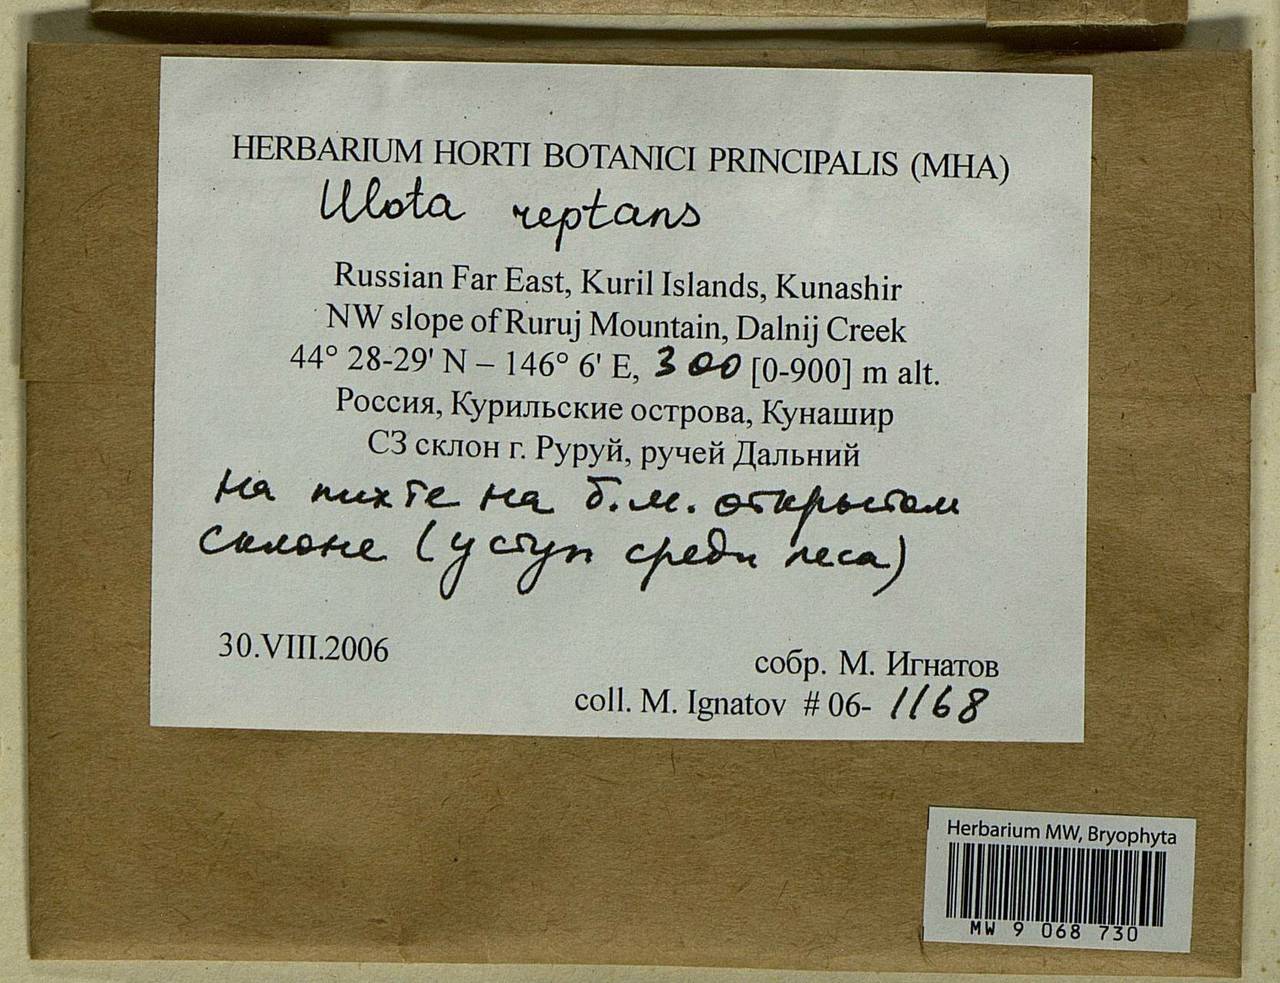 HERBARIUM HORTI BOTANICI PRINCIPALIS (MHA)
Ulota reptans
Russian Far East, Kuril Islands, Kunashir
NW slope of Ruruj Mountain, Dalnij Creek
44° 28-29' N – 146° 6' E, 300 [0-900] m alt.
Россия, Курильские острова, Кунашир
СЗ склон г. Руруй, ручей Дальний
На пихте на б.м. открытом
склоне (уступ среди леса)
30.VIII.2006
собр. М. Игнатов
coll. M. Ignatov # 06- 1168
Herbarium MW, Bryophyta
MW 9 068 730